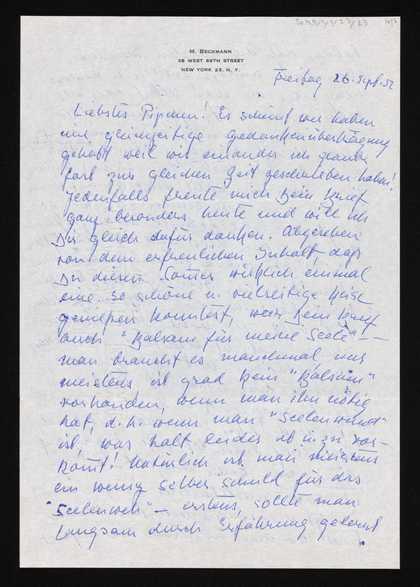 M. BECKMANN
38 WEST 69TH STREET
NEW YORK 23, N. Y.
Freitag 26. Sept. 52
Liebstes Pipchen! Es scheint wir haben
eine gleichzeitige Gedankenübertragung
gehabt weil wir einander ich glaube
fast zur gleichen Zeit geschrieben haben!
Jedenfalls freute mich Dein Brief
ganz besonders heute und will ich
Dir gleich dafür danken. Abgesehen
von dem erfreulichen Inhalt, dass
Du diesen Sommer wirklich einmal
eine so schöne u. vielseitige Reise
geniessen konntest, war Dein Brief
auch "Balsam für meine Seele" –
man braucht es manchmal und
meistens ist grad kein "Balsam"
vorhanden, wenn man ihn nötig
hat, d.h. wenn man "Seelenwund"
ist, was halt leider ab u. zu vor-
kommt! Natürlich ist man meistens
ein wenig selber schuld für das
"Seelenweh" – erstens, sollte man
langsam durch Erfahrung gelernt